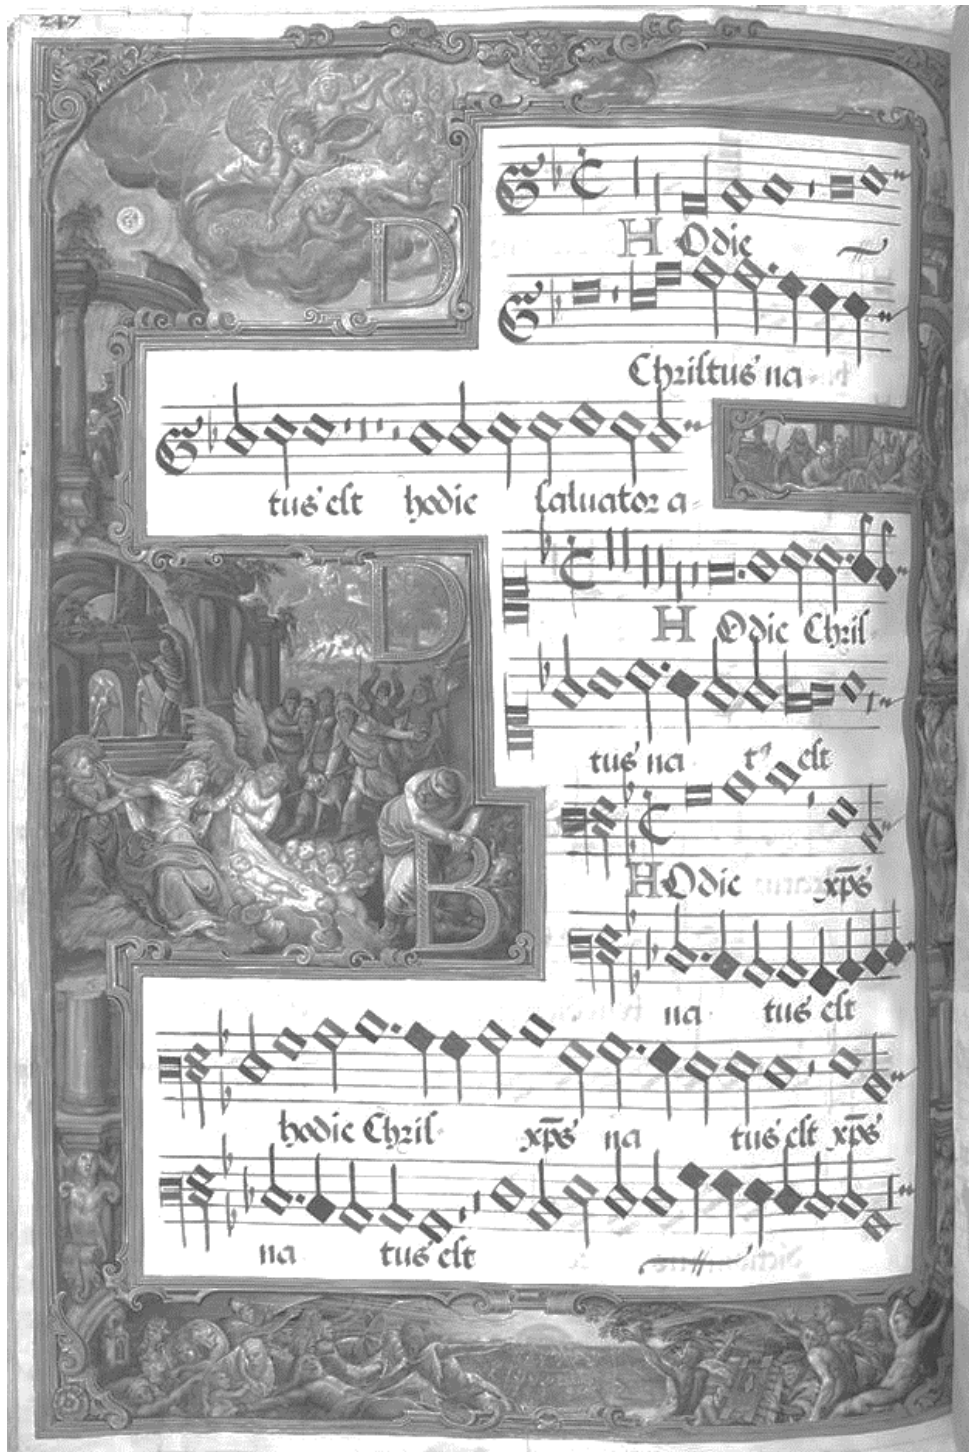 247
D
HOdie
Christus na
tus est hodie saluator a
D
HOdie Chris
tus na t⁹ est
HOdie xp̄s
B
na tus est
hodie Chris xp̄s na tus est xp̄s
na tus est